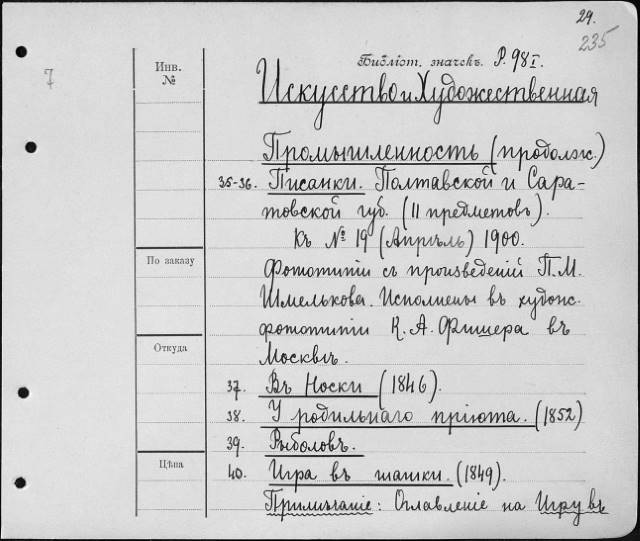 29.
235
7
Инв.
№
Библіот. значекъ. P. 98 I.
Искусство и Художественная
Промышленность (продолж.)
35-36. Писанки. Полтавской и Сара-
товской губ. (11 предметовъ).
Къ № 19 (Апрѣль) 1900.
По заказу
Фототипіи съ произведеній П. М.
Шмелькова. Исполнены въ худож.
фототипіи К. А. Фишера въ
Откуда
Москвѣ.
37. Въ Носки (1846).
38. У родильнаго пріюта. (1852)
39. Рыболовъ.
Цѣна
40. Игра въ шашки. (1849).
Примѣчаніе: Оглавленіе на Игру въ